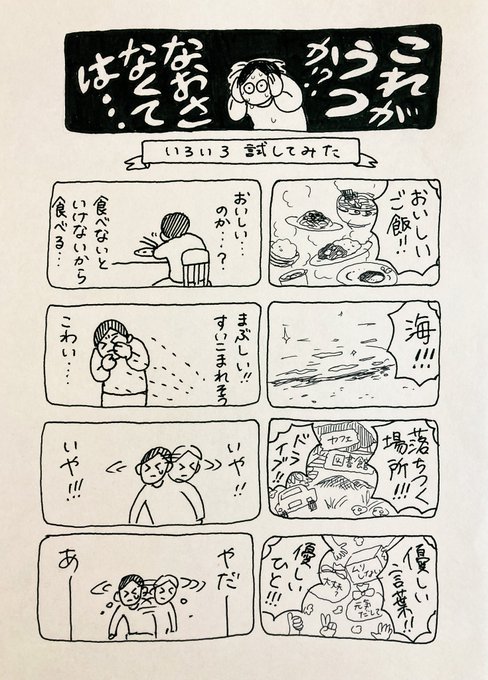 これが
うつ
か!?
なおさ
なくて
は…
いろいろ試してみた
おいしい
ご飯!!
おいしい…
のか…?
食べないと
いけないから
食べる…
海!!!
まぶしい!!
すいこまれそう
こわい…
落ちつく
場所!!!
カフェ
図書館
ドラ
イブ!!
いや!!
いや!!!
優しい
言葉!!
優しい
ひと!!!
元気
だして
やだ
あ